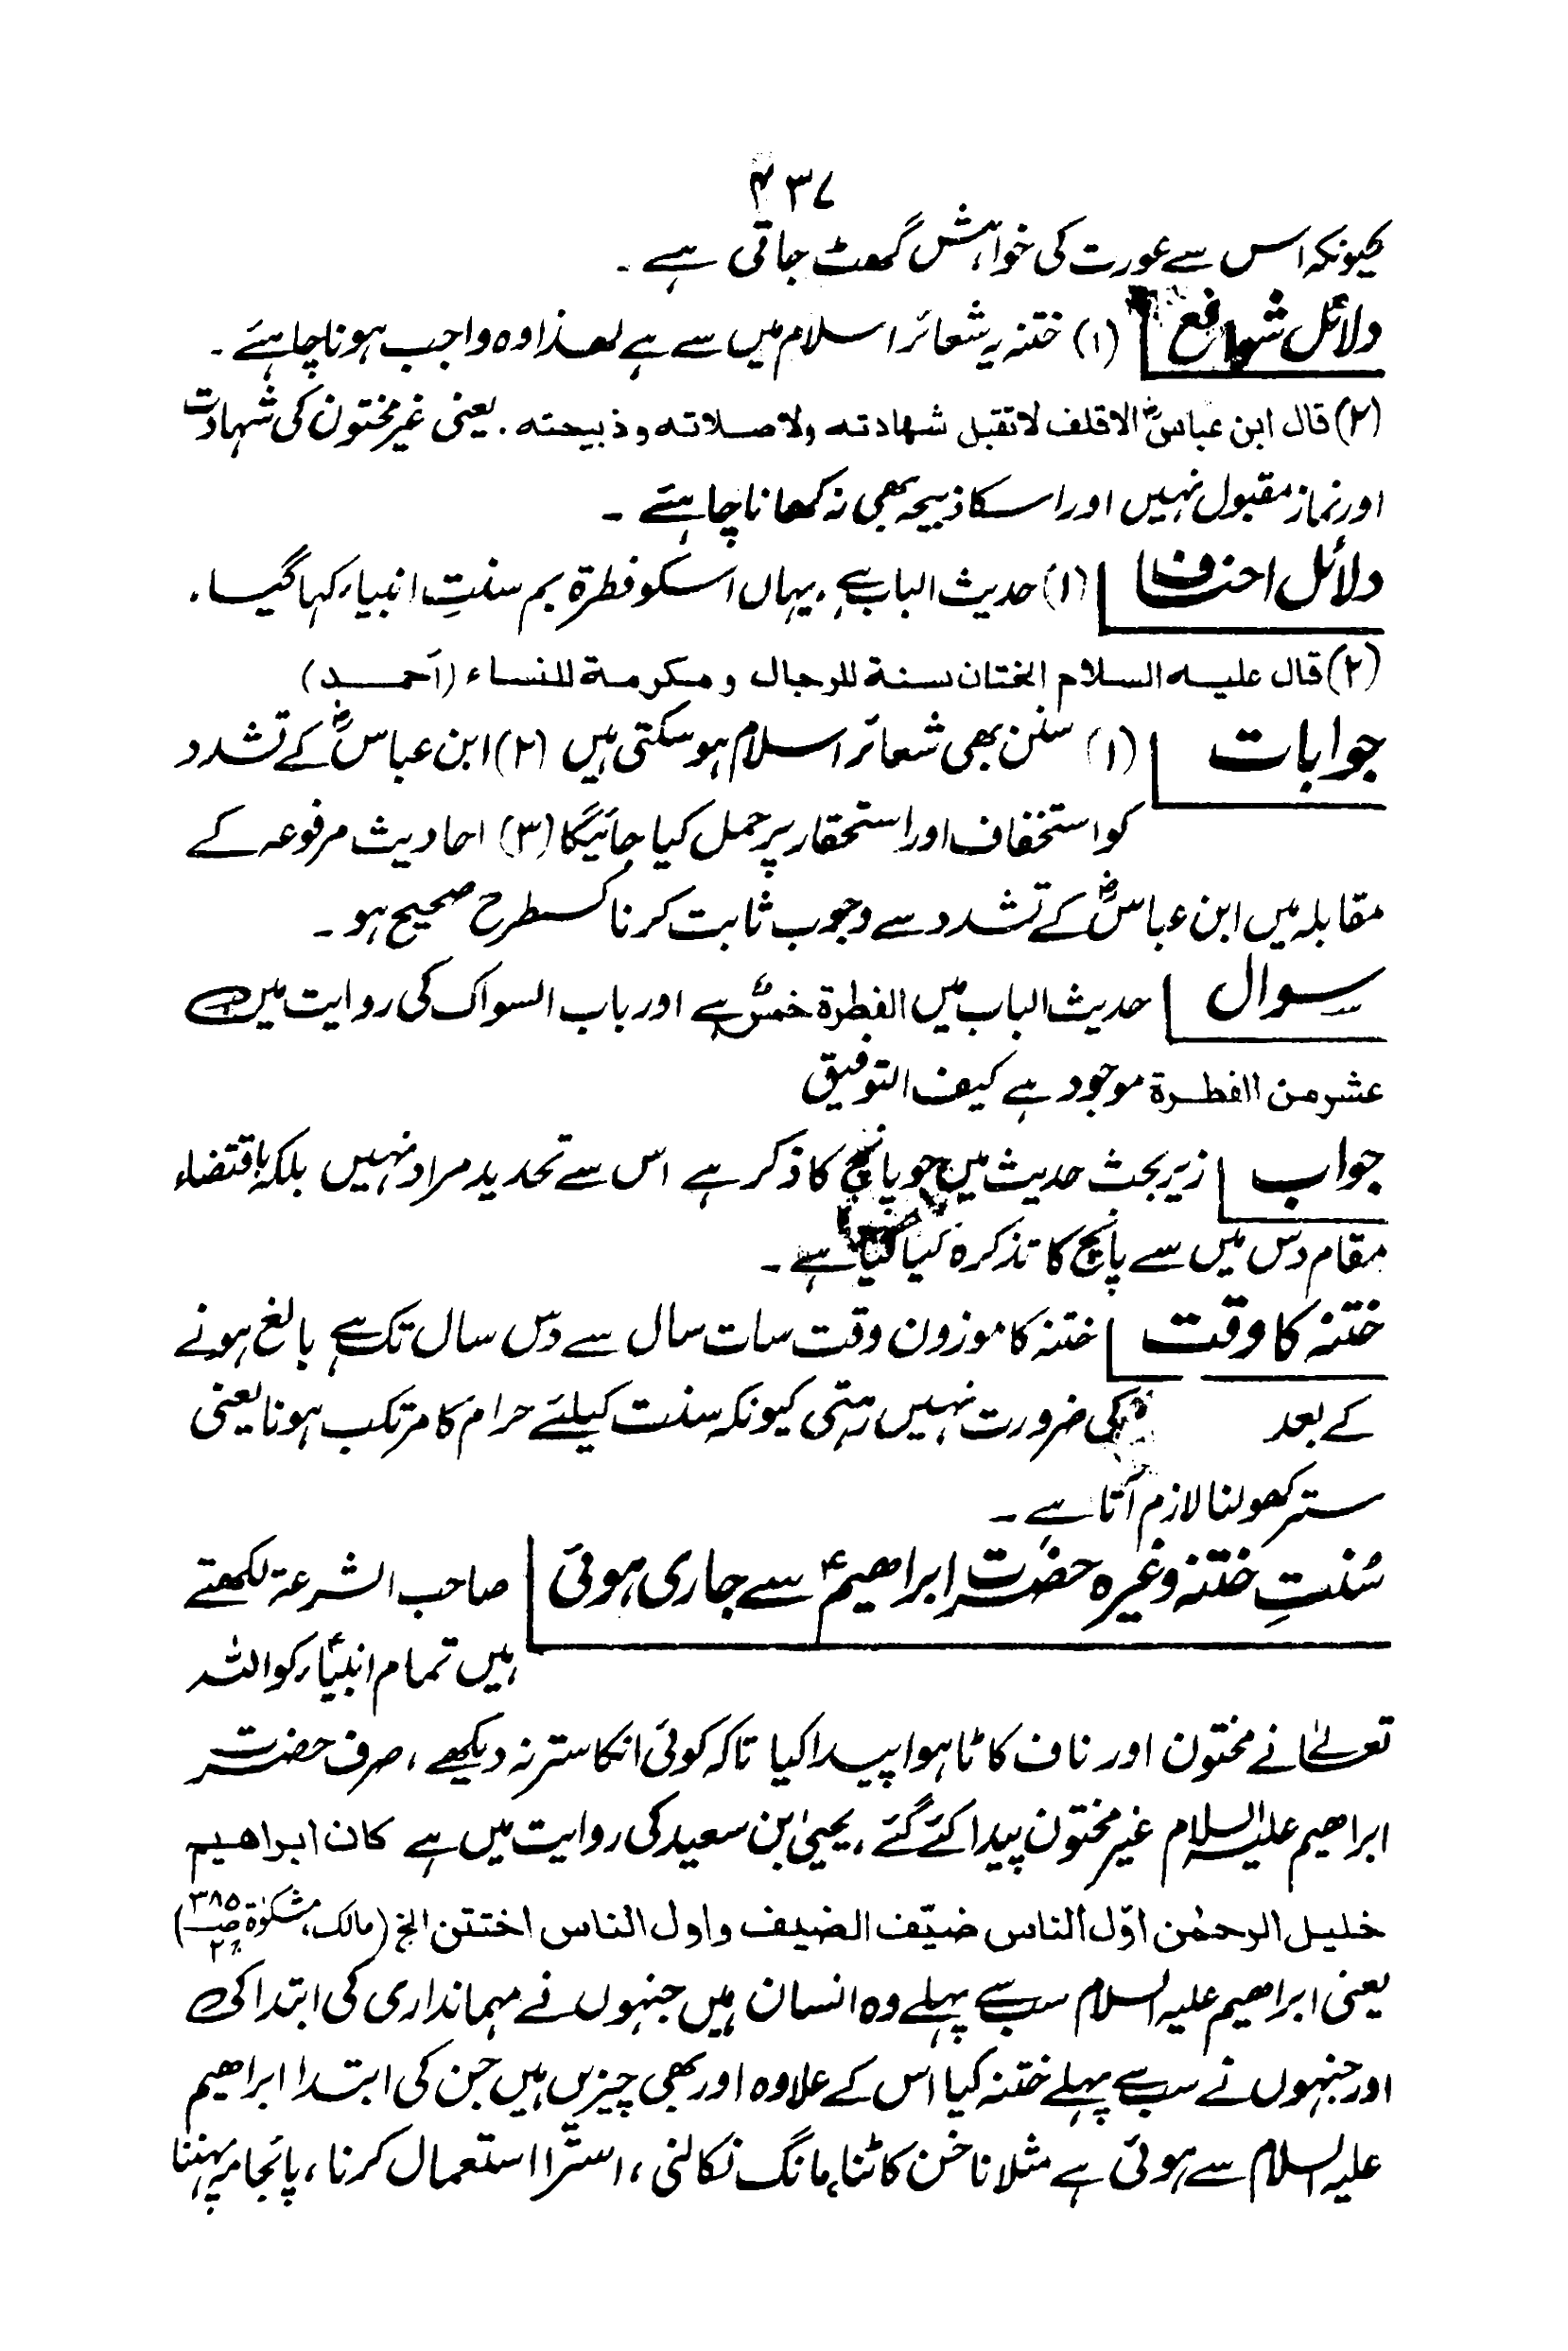 ۴۳۷
کیونکہ اس سے عورت کی خواہش گھٹ جاتی ہے ۔
دلائل شوافع (۱) ختنہ یہ شعائر اسلام میں سے ہے لھذا وہ واجب ہونا چاہئے ۔
(۲) قال ابن عباسؓ الاقلف لا تقبل شھادته ولا صلاته وذبیحته . یعنی غیر مختون کی شہادت
اور نماز مقبول نہیں اور اسکا ذبیحہ بھی نہ کھانا چاہئے ۔
دلائل احناف (۱) حدیث الباب ہے، یہاں اسکو فطرۃ بم سنتِ انبیاء کہا گیا ۔
(۲) قال علیه السلام الختان سنة للرجال ومکرمة للنساء (احمد)
جوابات (۱) سنن بھی شعائر اسلام ہوسکتی ہیں (۲) ابن عباسؓ کے تشدد
کو استخفاف اور استحقار پر حمل کیا جائیگا (۳) احادیث مرفوعہ کے
مقابلہ میں ابن عباسؓ کے تشدد سے وجوب ثابت کرنا کسطرح صحیح ہو ۔
سوال حدیث الباب میں الفطرة خمسٌ ہے اور باب السواک کی روایت میں
عشر من الفطرة موجود ہے کیف التوفیق
جواب زیر بحث حدیث میں جو پانچ کا ذکر ہے اس سے تحدید مراد نہیں بلکہ باقتضاء
مقام دس میں سے پانچ کا تذکرہ کیا گیا ہے ۔
ختنہ کا وقت ختنہ کا موزون وقت سات سال سے دس سال تک ہے بالغ ہونے
کے بعد کی ضرورت نہیں رہتی کیونکہ سنت کیلئے حرام کا مرتکب ہونا یعنی
ستر کھولنا لازم آتا ہے ۔
سُنتِ ختنہ وغیرہ حضرت ابراھیمؑ سے جاری ہوئی صاحب الشرعۃ لکھتے
ہیں تمام انبیاءؑ کو اللہ
تعالےٰ نے مختون اور ناف کاٹا ہوا پیدا کیا تاکہ کوئی انکا ستر نہ دیکھے ، صرف حضرت
ابراھیم علیہ السلام غیر مختون پیدا کئے گئے ، یحییٰ بن سعید کی روایت میں ہے کان ابراھیم
خلیل الرحمٰن اوّل الناس ضیّف الضیف واول الناس اختتن الخ (مالک، مشکوٰۃ ص ۳۸۵ ج ۲)
یعنی ابراھیم علیہ السلام سب سے پہلے وہ انسان ہیں جنہوں نے مہمانداری کی ابتدا کی
اور جنہوں نے سب سے پہلے ختنہ کیا اس کے علاوہ اور بھی چیزیں ہیں جن کی ابتدا ابراھیم
علیہ السلام سے ہوئی ہے مثلا ناخن کاٹنا، مانگ نکالنی ، استرا استعمال کرنا ، پائجامہ پہننا